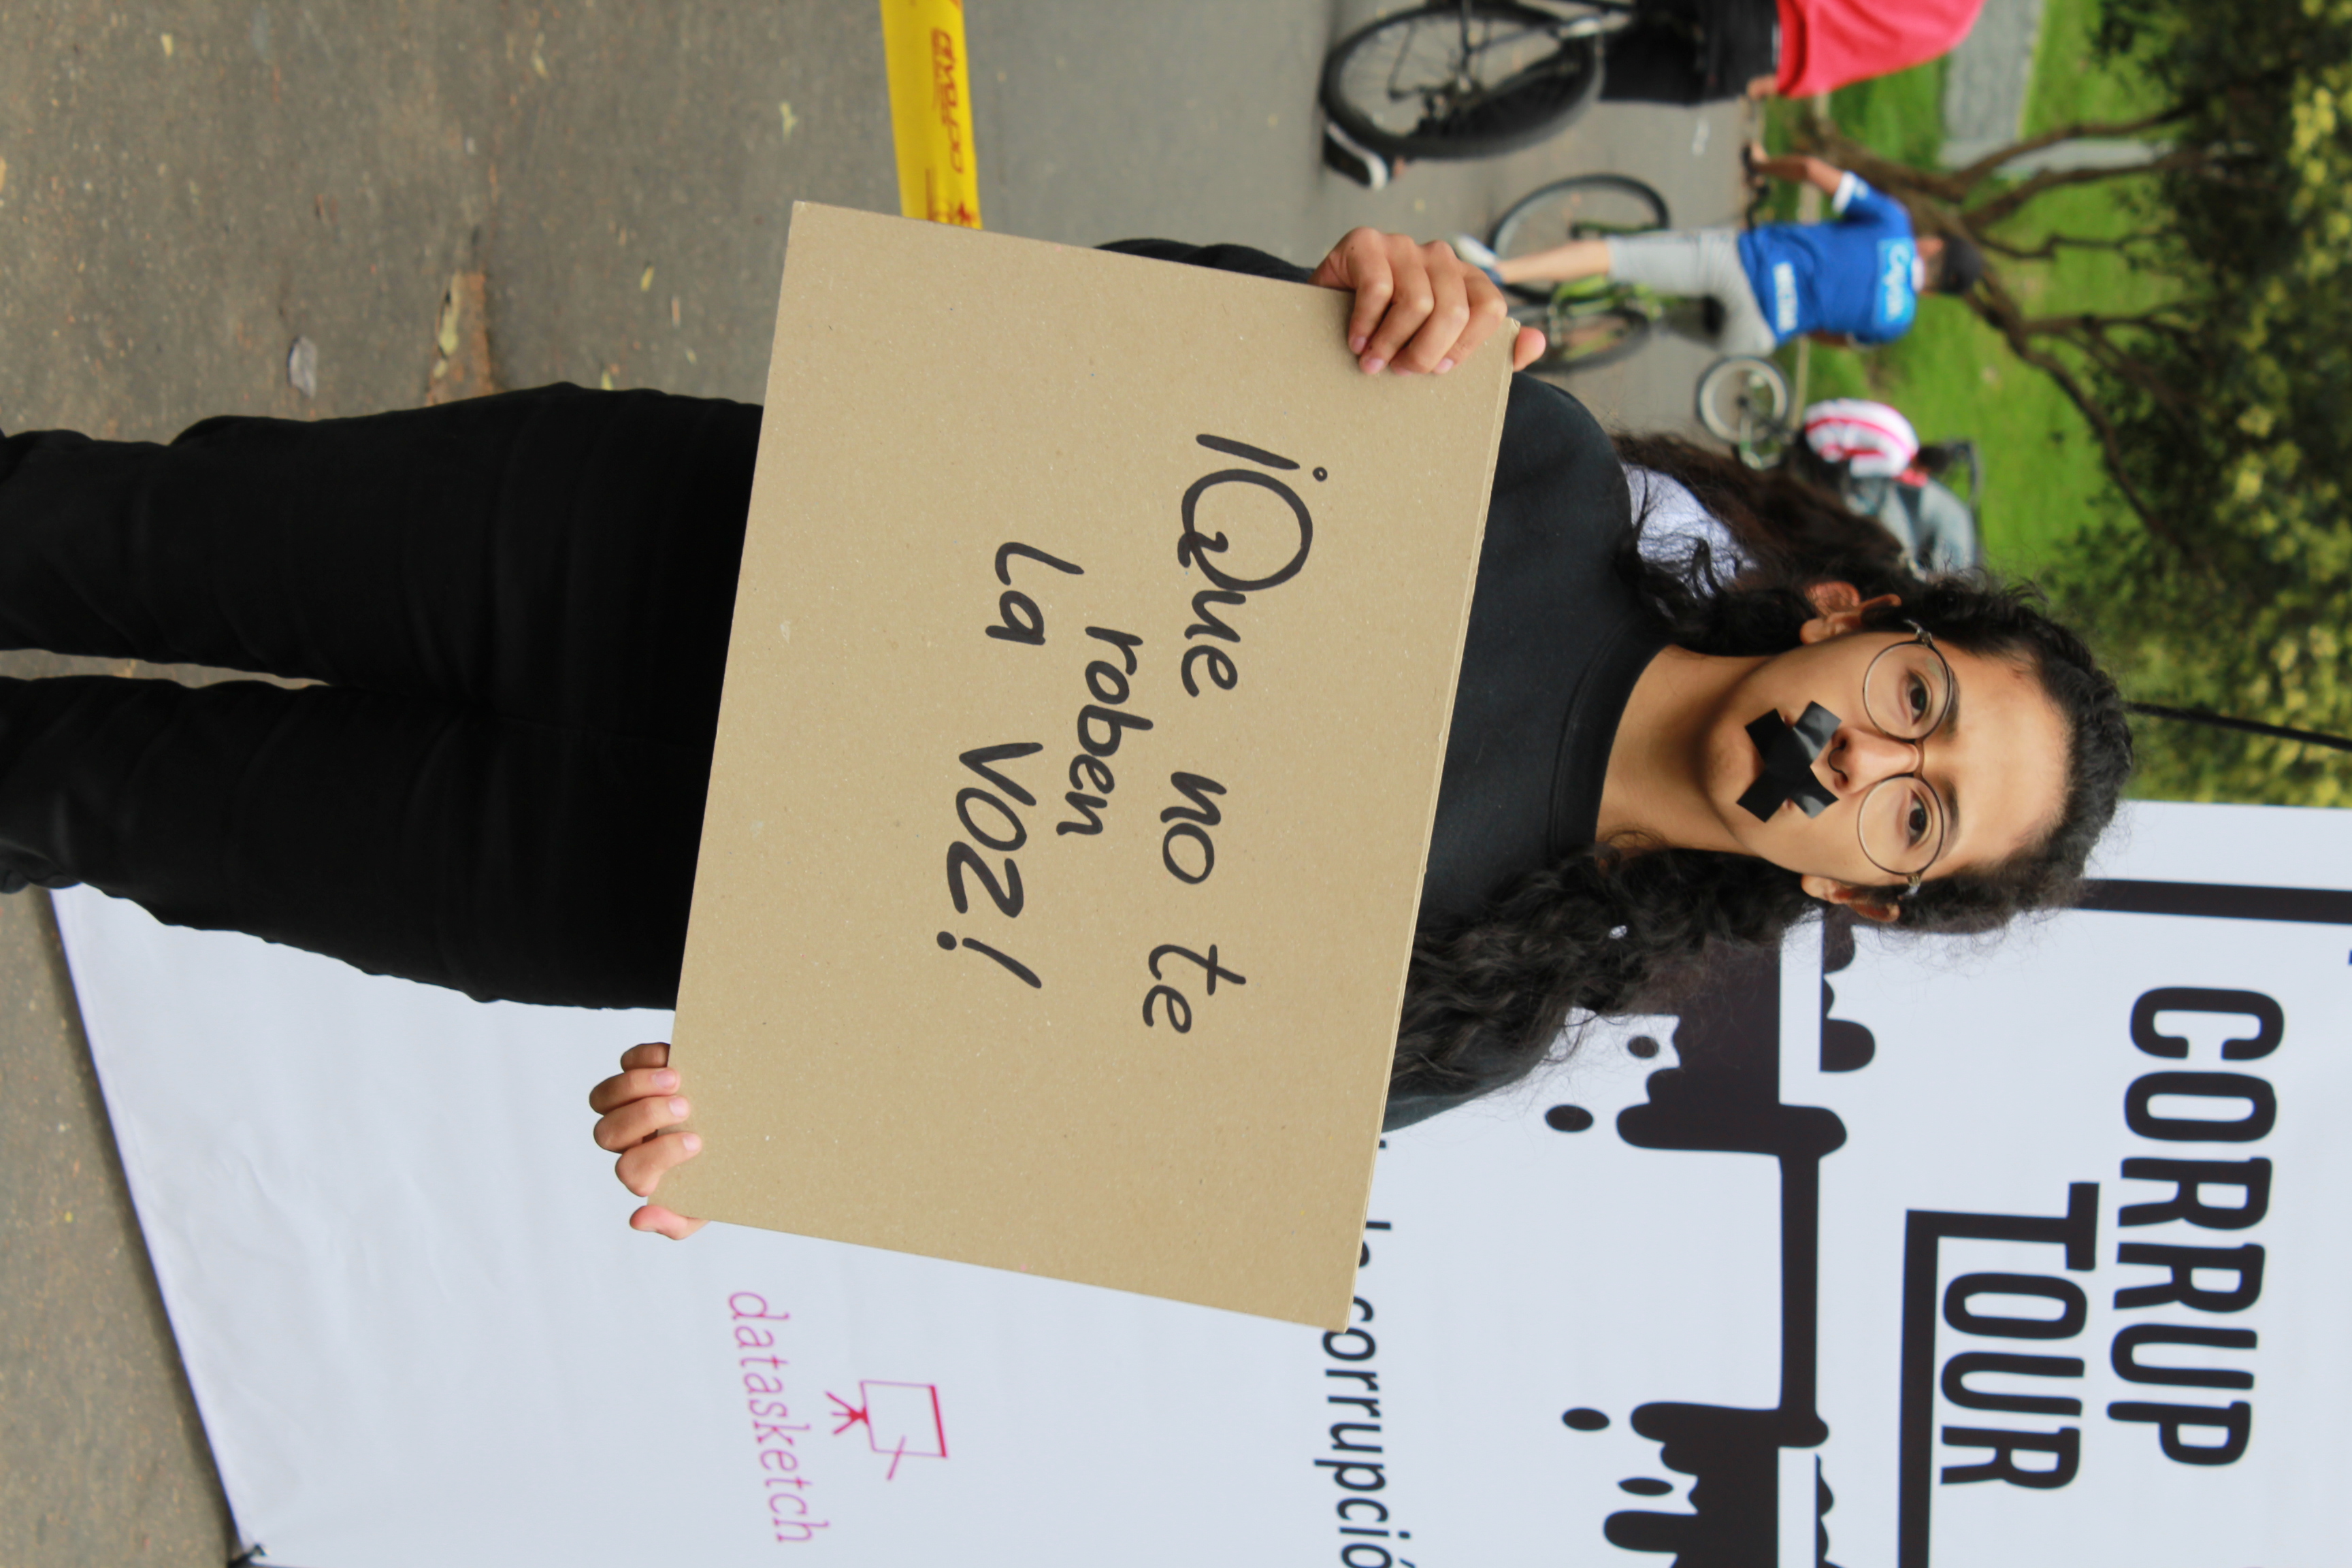 CORRUP
TOUR
la corrupció
¡Que no te
roben
la voz!
datasketch